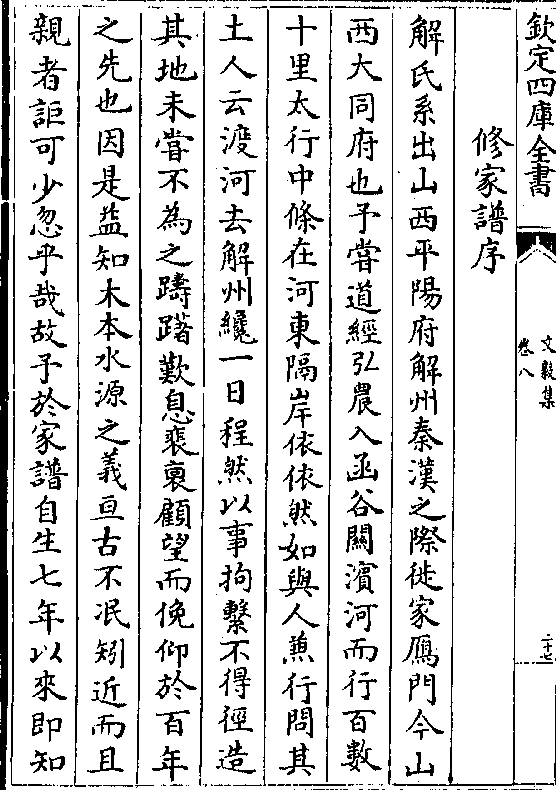 欽定四庫全書
文毅集
卷八
二十七
修家譜序
解氏系出山西平陽府解州秦漢之際徙家鴈門今山
西大同府也予嘗道經弘農入函谷關濱河而行百數
十里太行中條在河東隔岸依依然如與人並行問其
土人云渡河去解州纔一日程然以事拘繫不得徑造
其地未嘗不為之躊躇歎息裵裛顧望而俛仰於百年
之先也因是益知木本水源之義亘古不冺矧近而且
親者詎可少忽乎哉故予於家譜自生七年以來即知